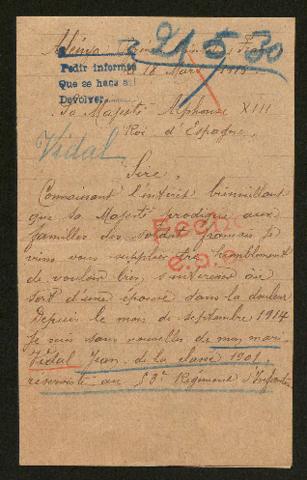 21530
Pedir informes
Que se haca al
Devolver
16 Mars 1915
Sa Majesté Alphonse XIII
Roi d'Espagne
Vidal
Sire,
Connaissant l'intérêt bienveillant
que sa Majesté prodigue aux
familles des soldats français je
viens vous supplier très humblement
de vouloir bien s'intéresser au
sort d'une épouse dans la douleur
Depuis le mois de septembre 1914
Je suis sans nouvelles de mon mari
Vidal Jean de la classe 1901.
réserviste au Régiment d'Infanterie